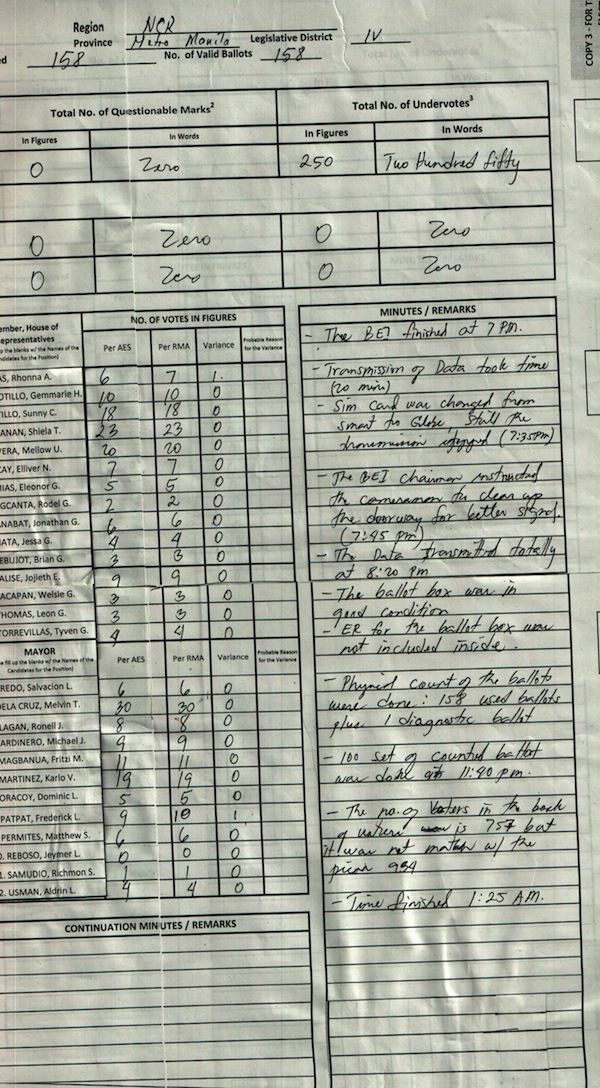 COPY 3 - FOR T
Region NCR
Province Metro Manila Legislative District IV
d 158 No. of Valid Ballots 158
Total No. of Questionable Marks² Total No. of Undervotes³
In Figures In Words In Figures In Words
0 Zero 250 Two Hundred fifty
0 Zero 0 Zero
0 Zero 0 Zero
ember, House of NO. OF VOTES IN FIGURES
epresentatives Per AES Per RMA Variance Probable Reason for the Variance
p the blanks w/ the Names of the
ndidates for the Position)
AS, Rhonna A. 6 7 1
OTILLO, Gemmarie H. 10 10 0
TILLO, Sunny C. 18 18 0
ANAN, Shiela T. 23 23 0
VERA, Mellow U. 20 20 0
CAY, Elliver N. 7 7 0
IIAS, Eleonor G. 5 5 0
GCANTA, Rodel G. 2 2 0
NABAT, Jonathan G. 6 6 0
ATA, Jessa G. 4 4 0
EBUJOT, Brian G. 3 3 0
ALISE, Jojieth E. 9 9 0
ACAPAN, Welsie G. 3 3 0
THOMAS, Leon G. 3 3 0
TORREVILLAS, Tyven G. 4 4 0
MAYOR Per AES Per RMA Variance Probable Reason for the Variance
e fill up the blanks w/ the Names of the
Candidates for the Position)
REDO, Salvacion L. 6 6 0
DELA CRUZ, Melvin T. 30 30 0
LAGAN, Ronell J. 8 8 0
ARDINERO, Michael J. 9 9 0
MAGBANUA, Fritzi M. 11 11 0
MARTINEZ, Karlo V. 19 19 0
ORACOY, Dominic L. 5 5 0
PATPAT, Frederick L. 9 10 1
PERMITES, Matthew S. 6 6 0
0. REBOSO, Jeymer L. 0 0 0
1. SAMUDIO, Richmon S. 1 1 0
2. USMAN, Aldrin L. 4 4 0
CONTINUATION MINUTES / REMARKS
MINUTES / REMARKS
- The BEI finished at 7 PM.
- Transmission of Data took time
(20 min)
- Sim Card was changed from
smart to Globe, Still the
transmission (7:35PM)
- The BEI chairman instructed
the cameraman to clear up
the doorway for better signal.
(7:45 pm)
- The Data transmitted totally
at 8:20 pm
- The ballot box was in
good condition
- ER for the ballot box was
not included inside.
- Physical count of the ballots
were done: 158 used ballots
plus 1 diagnostic ballot
- 100 set of counted ballot
was done at 11:40 pm.
- The no. of voters in the book
of voters is 757 but
it was not match w/ the
984
- Time finished 1:25 AM.